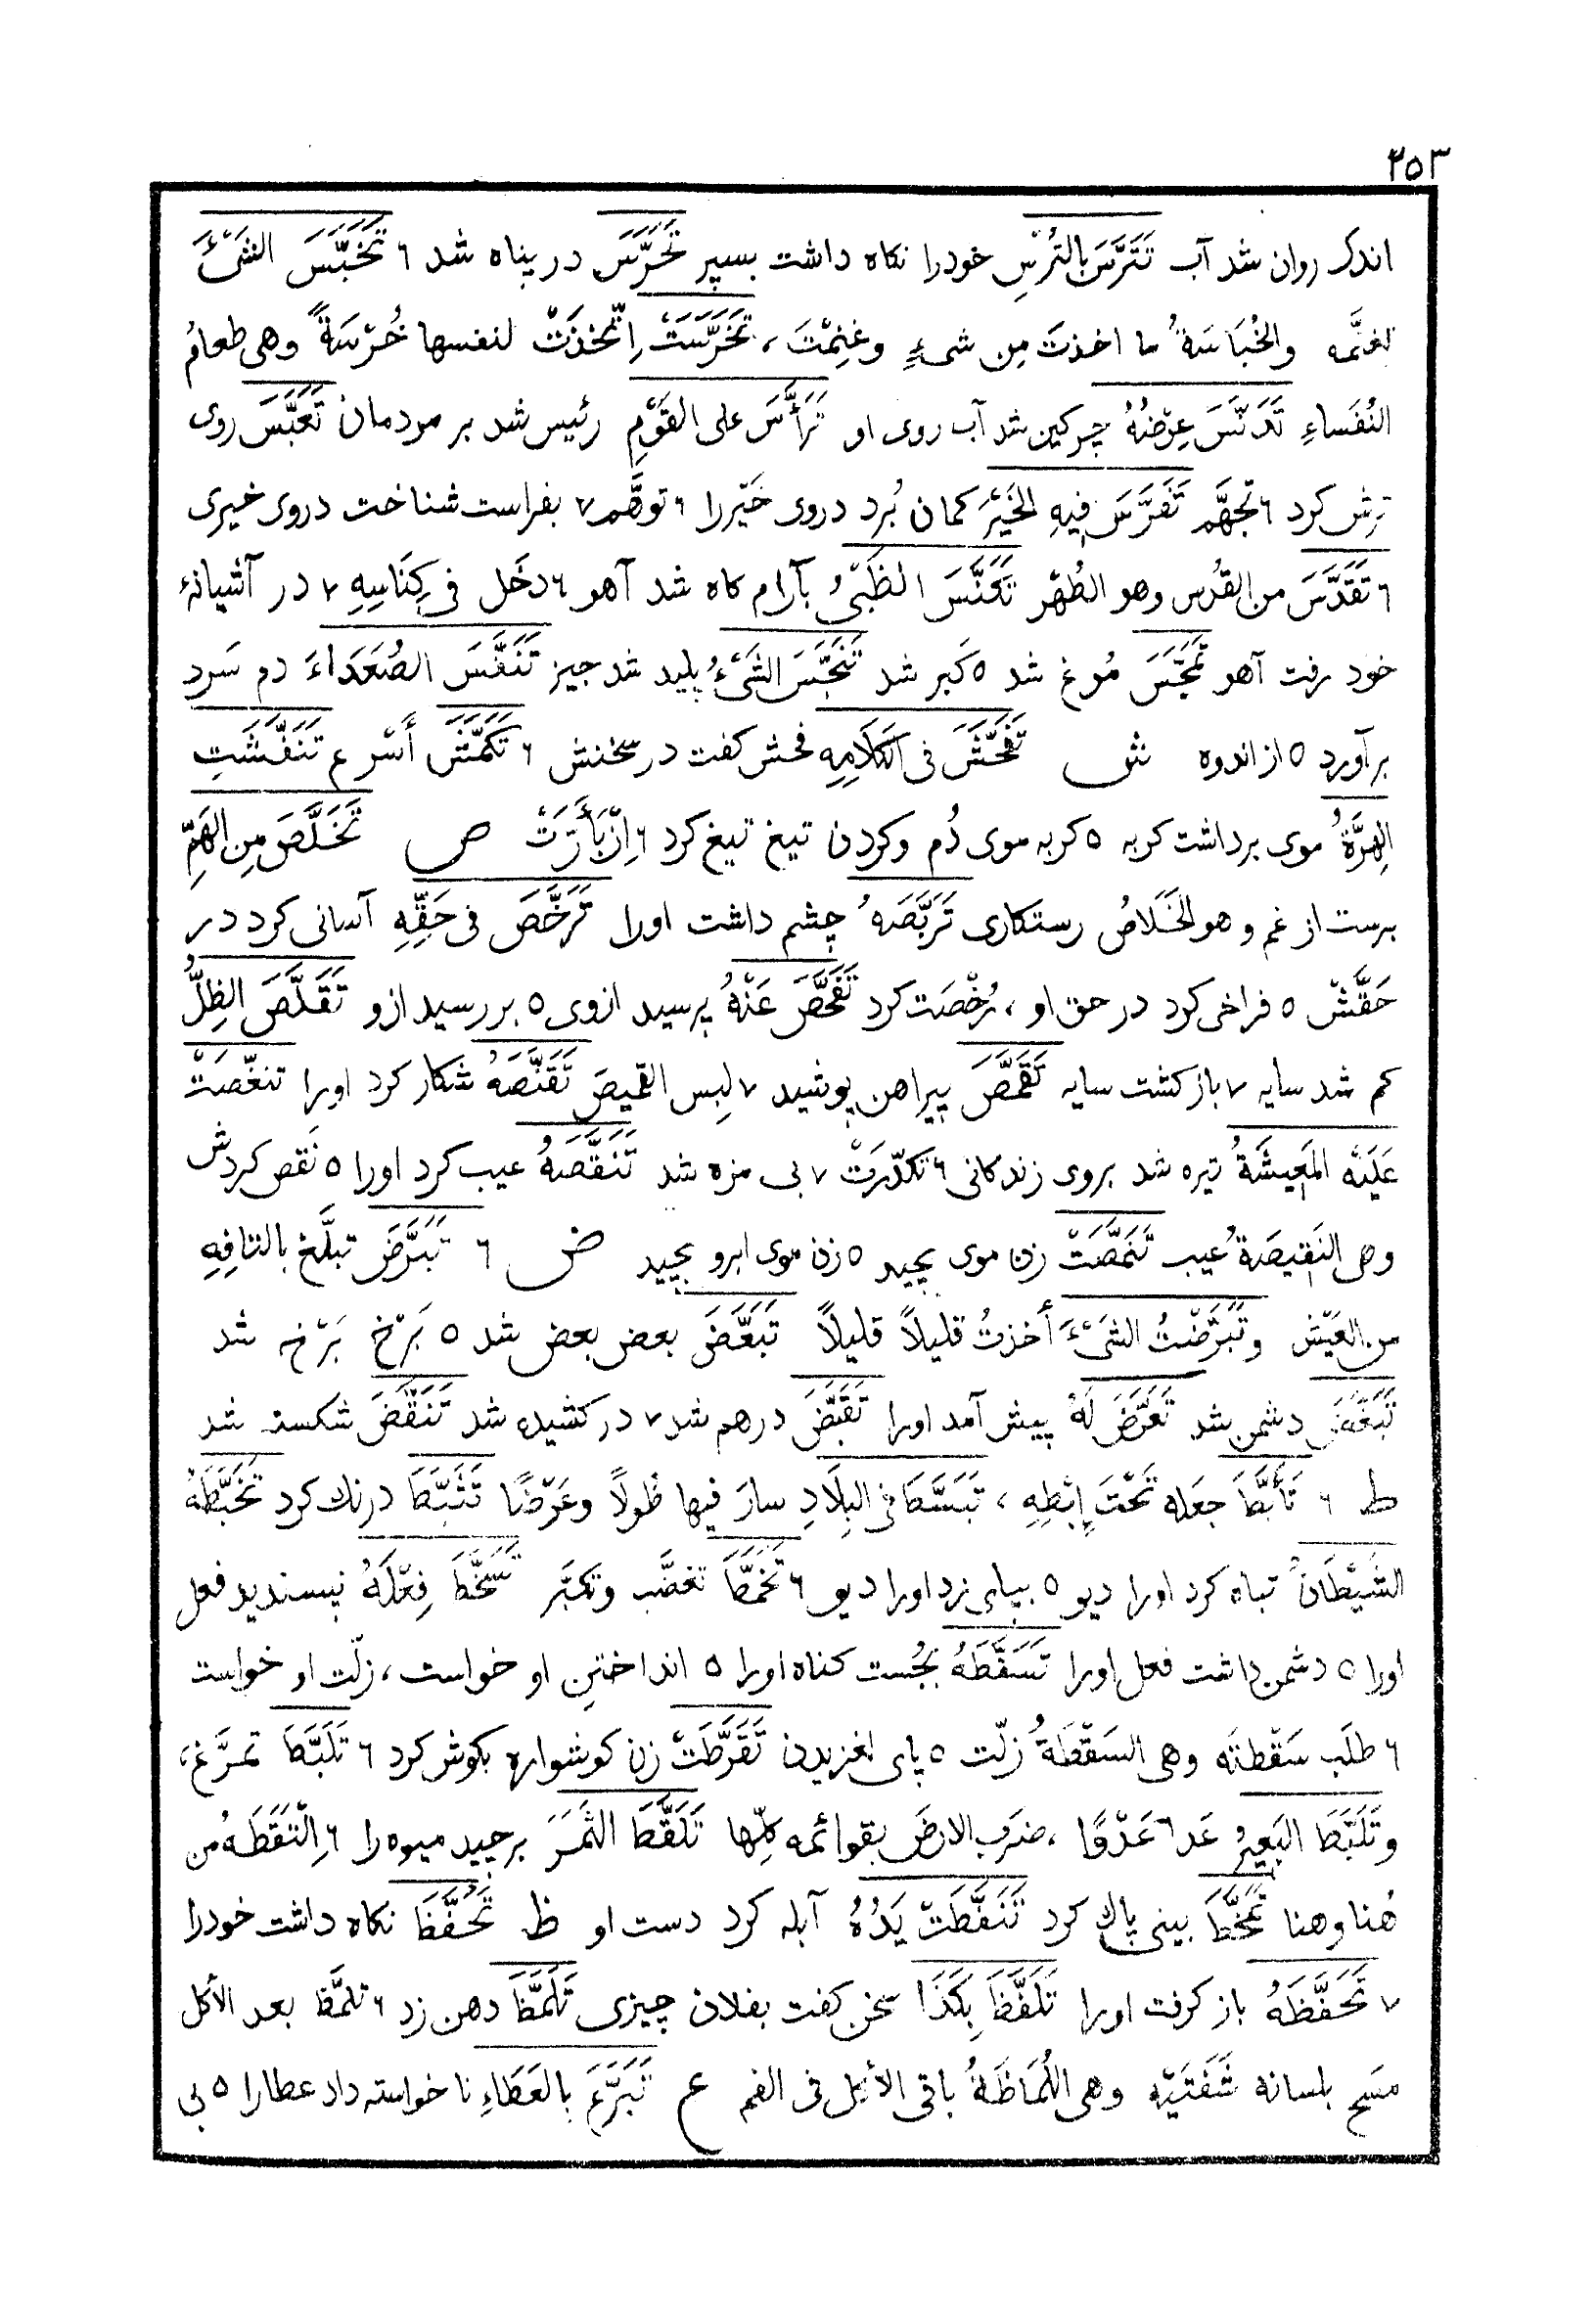 ۲۵۳
اندک روان شد آب تَتَرَّسَ بالتُرْسِ خود را نکاه داشت بسپر تَحَرَّسَ در پناه شد ۶ تَخَبَّسَ الشَیْءَ
تغنَّمه والخُبَاسَةُ ما اخذتَ مِن شیءٍ وغنِمْتَ، تَخَرَّسَتْ اِتّخذَتْ لنفسها خُرْسَةً وهی طعامُ
النُفَساءِ تَدَنَّسَ عِرْضُهُ چرکین شد آب روی او تَرَأَّسَ علی القَوْمِ رئیس شد بر مردمان تَعَبَّسَ روی
ترش کرد ۶ تجهَّم تَفَرَّسَ فِیهِ الخَیْرَ کمان بُرد در وی خَیْر را ۶ توهَّم ۷ بفراست شناخت در وی خیری
۶ تَقَدَّسَ من القُدس وهو الطُهْر تَکَنَّسَ الظَبْیُ بآرام کاه شد آهو ۶ دخَل فی کِنَاسِهِ ۷ در آشیانهٔ
خود رفت آهو تَمَجَّسَ مُوغ شد ۵ کبر شد تَنَجَّسَ الشَیْءُ پلید شد جیز تَنَفَّسَ الصُعَدَاءَ دم سَرد
برآورد ۵ از اندوه ش تَفَحَّشَ فی الکَلَامِهِ فحش کفت در سخنش ۶ تَکَمَّشَ أَسْرع تَنَفَّشَتِ
الهِرَّةُ موی برداشت کربه ۵ کربه موی دُم وکردن تیغ تیغ کرد ۶ اِزْبَأَرَّتْ ص تَخَلَّصَ مِن الهَمِّ
برست از غم و هو الخَلَاصُ رستکاری تَرَبَّصَهُ چشم داشت اورا تَرَخَّصَ فی حَقِّهِ آسانی کرد در
حَقَّش ۵ فراخی کرد در حق او، رُخْصَت کرد تَفَحَّصَ عَنْهُ پرسید ازوی ۵ بررسید ازو تَقَلَّصَ الظِلُّ
کم شد سایه ۷ باز کشت سایه تَقَمَّصَ پیراهن پوشید ۷ لبِس القمیصَ تَقَنَّصَهُ شکار کرد اورا تنغّصَتْ
عَلَیْه المَعِیشَةُ تیره شد بروی زندکانی ۶ تکدّرَتْ ۷ بی مزه شد تَنَقَّصَهُ عیب کرد اورا ۵ نقص کردش
وهی النَقِیصَةُ عیب تَنَمَّصَتْ زن موی بچید ۵ زن موی ابرو بچید ض ۶ تَبَرَّضَ تبلَّغ بالتافِهِ
من العَیْش وتَبَرَّضْتُ الشَیْءَ أخذتُ قلیلاً قلیلاً تَبَعَّضَ بعض بعض شد ۵ بَرْخ بَرْخه شد
تَبَغَّضَ دشمن شد تَعَرَّضَ لَهُ پیش آمد اورا تَقَبَّضَ درهم شد ۷ درکشیده شد تَنَقَّضَ شکسته شد
ط ۶ تَأَبَّطَ جعَله تَحْتَ إِبْطِهِ، تَبَسَّطَ فی البِلَادِ سارَ فیها طُولاً وعَرْضًا تَثَبَّطَ درنك کرد تَخَبَّطَهُ
الشَیْطَانُ تباه کرد اورا دیو ۵ بپای زد اورا دیو ۶ تَخَمَّطَ تغضَّب وتکبَّر تَسَخَّطَ فِعْلَهُ نپسندید فعل
اورا ۵ دشمن داشت فعل اورا تَسَقَّطَهُ بجُست کناه اورا ۵ انداختنِ او خواست، زلّت او خواست
۶ طلَب سَقْطتَه وهی السَقْطَةُ زلّت ۵ پای لغزیدن تَقَرَّطَتْ زن کوشواره بکوش کرد ۶ تَلَبَّطَ تمرَّغ،
وتَلَبَّطَ البَعِیرُ عَدا عَدْوًا، ضرَب الارضَ بقوائمه کلِّها تَلَقَّطَ الثَمَرَ برچید میوه را ۶ اِلْتَقَطَهُ من
هُنا وهنا تَمَخَّطَ بینی پاك کرد تَنَفَّطَتْ یَدُهُ آبله کرد دست او ظ تَحَفَّظَ نکاه داشت خودرا
۷ تَحَفَّظَهُ باز کرفت اورا تَلَفَّظَ بِکَذَا سخن کفت بفلان چیزی تَلَمَّظَ دهن زد ۶ تلمَّظ بعد الأکل
مسَح بلسانه شَفَتَیْه وهی اللُمَاظَةُ باقی الأکل فی الفم ع تَبَرَّعَ بالعَطَاءِ نا خواسته داد عطارا ۵ بی